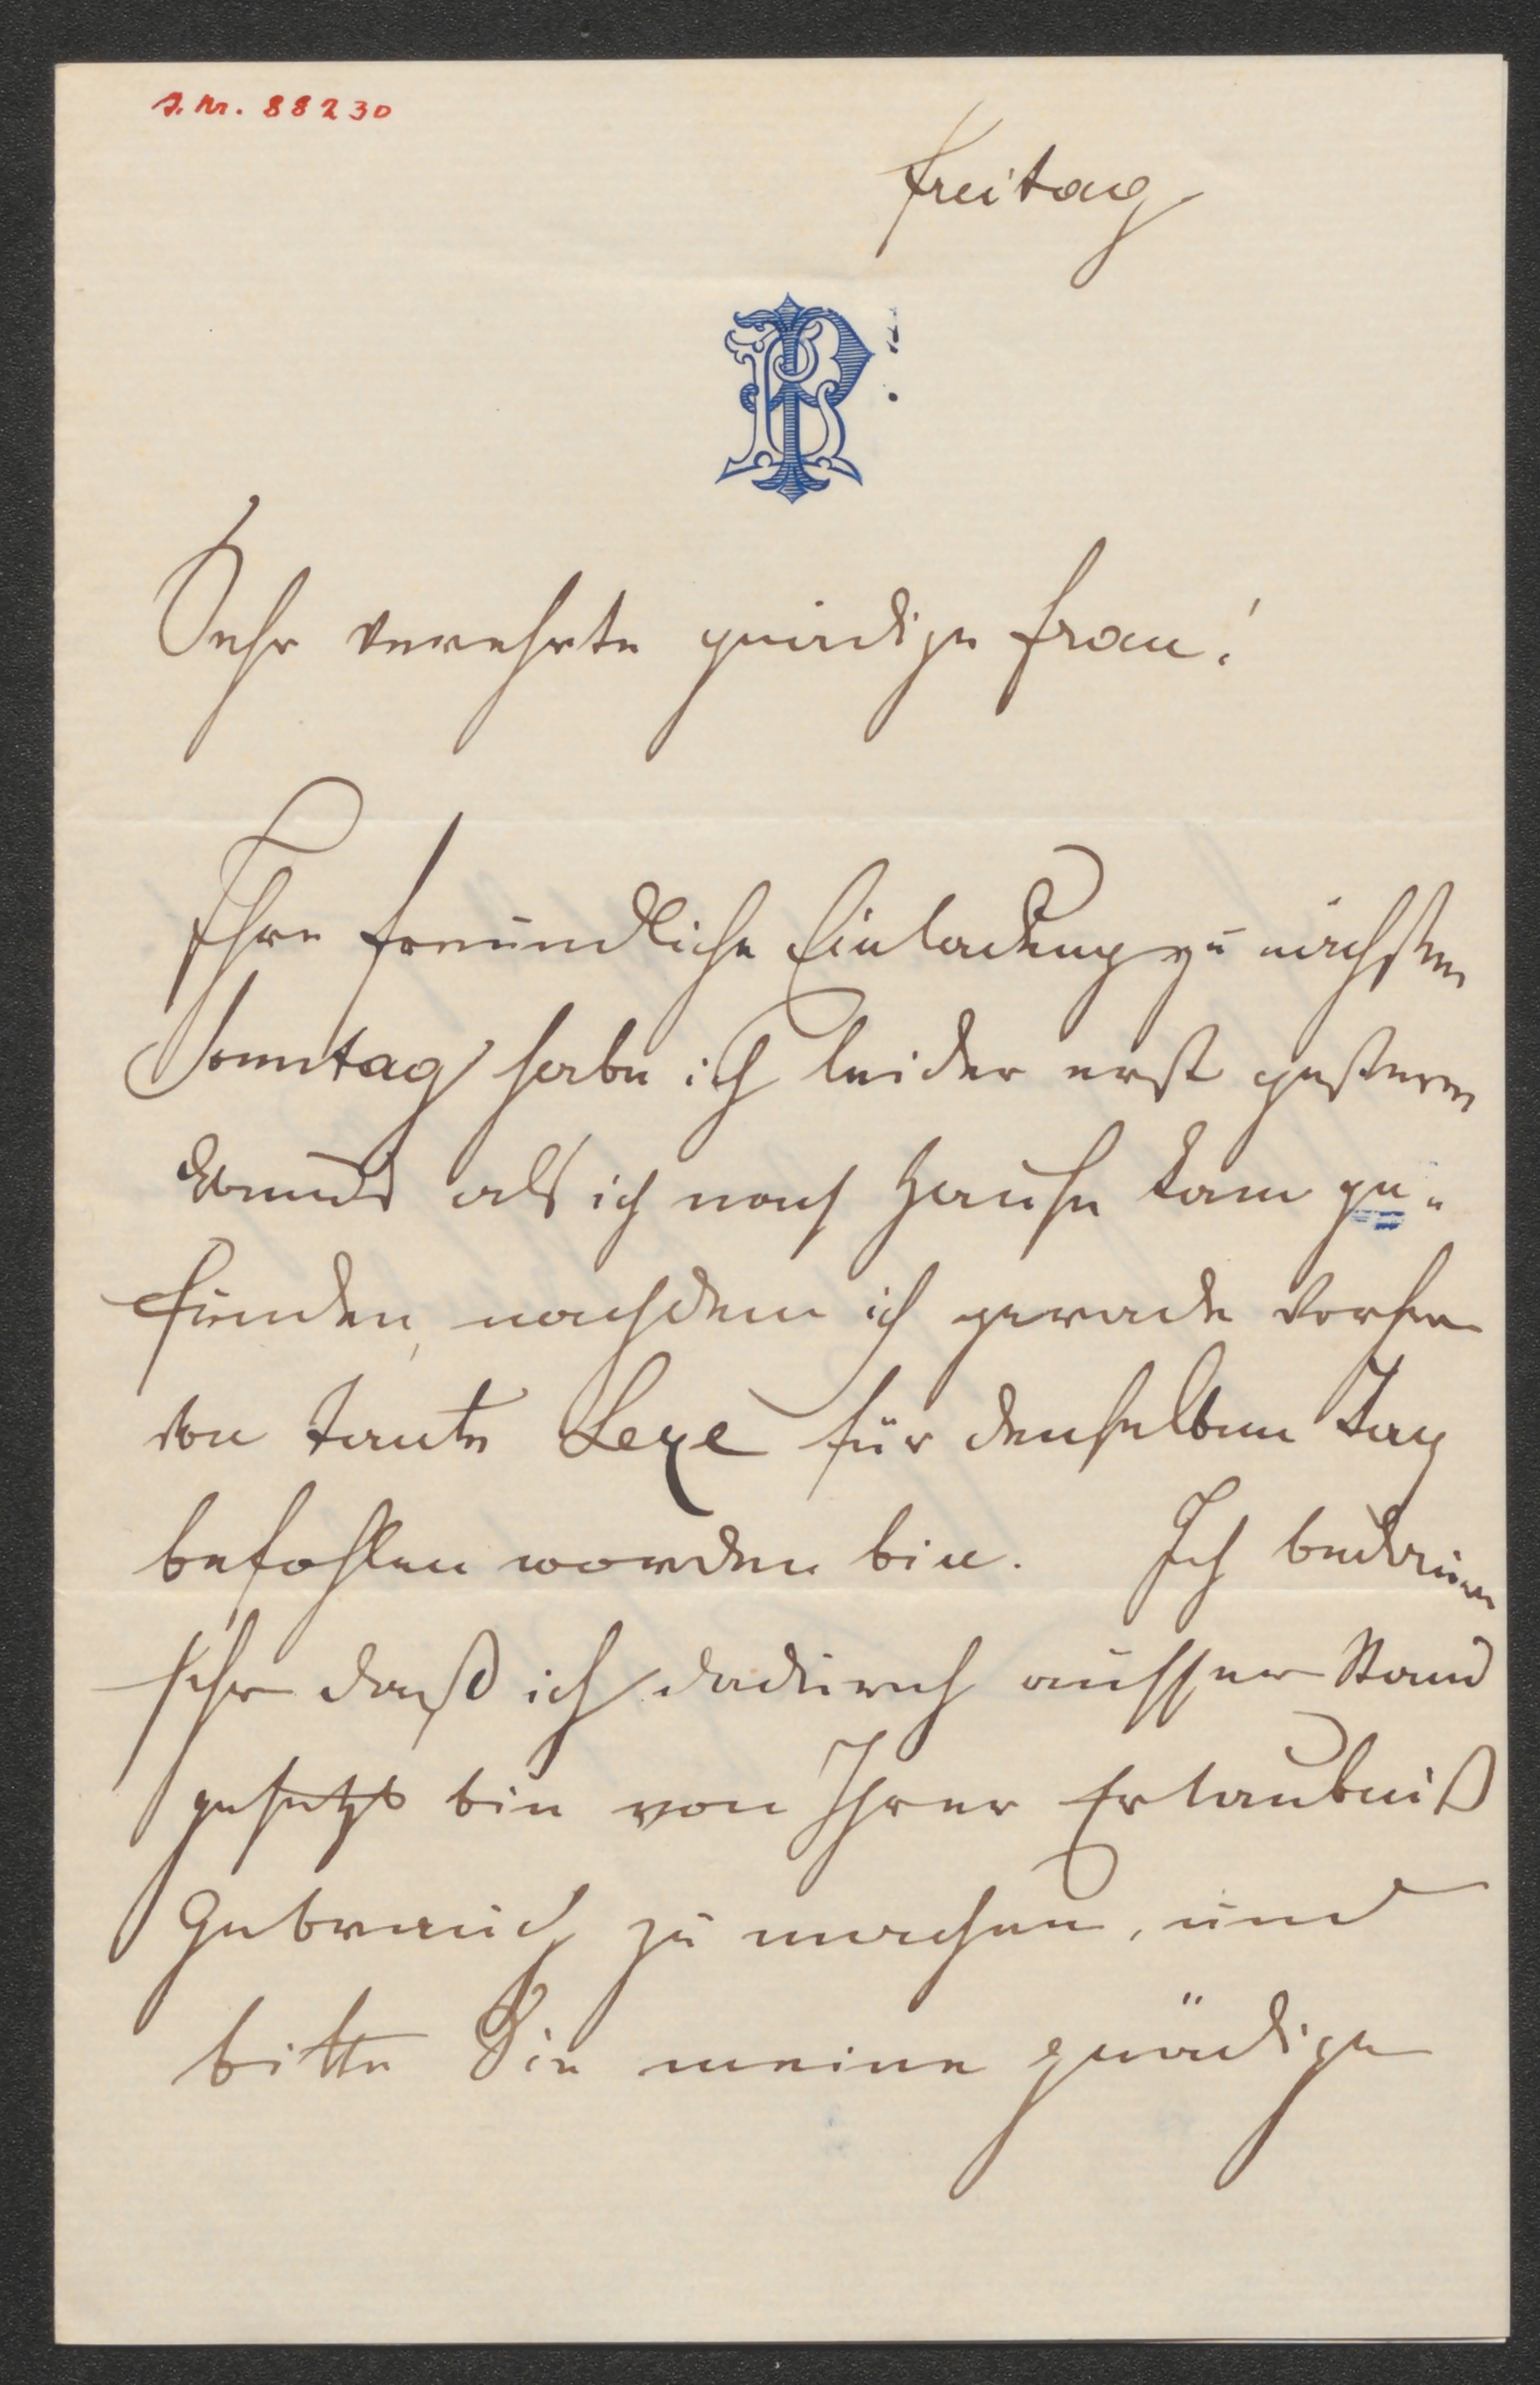 J. Nr. 88230
Freitag
Sehr verehrte gnädige Frau!
Ihre freundliche Einladung zu nächsten
Sonntag habe ich leider erst gestern
Abends als ich nach Hause kam ge-
funden, nachdem ich gerade vorher
von Tante Lexe für denselben Tag
befohlen worden bin. Ich bedaure
sehr daß ich dadurch ausser Stand
gesetzt bin von Ihrer Erlaubniß
Gebrauch zu machen, und
bitte Sie meine gnädige